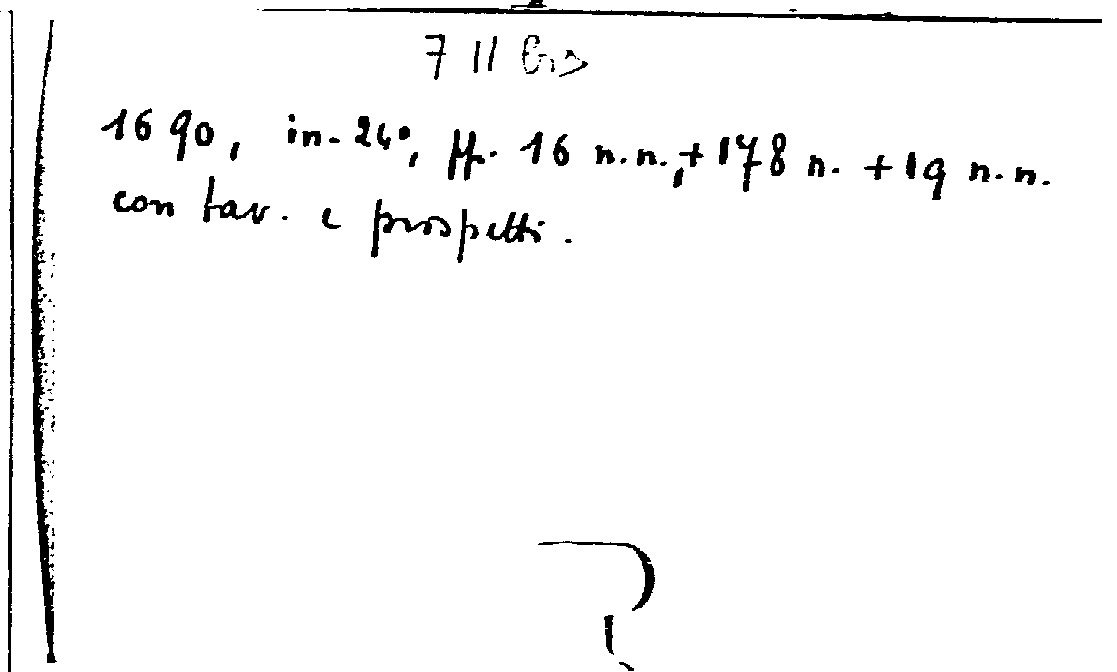 7 11 bis
1690, in-24°, ff. 16 n.n., + 178 n. + 19 n.n.
con tav. e prospetti.